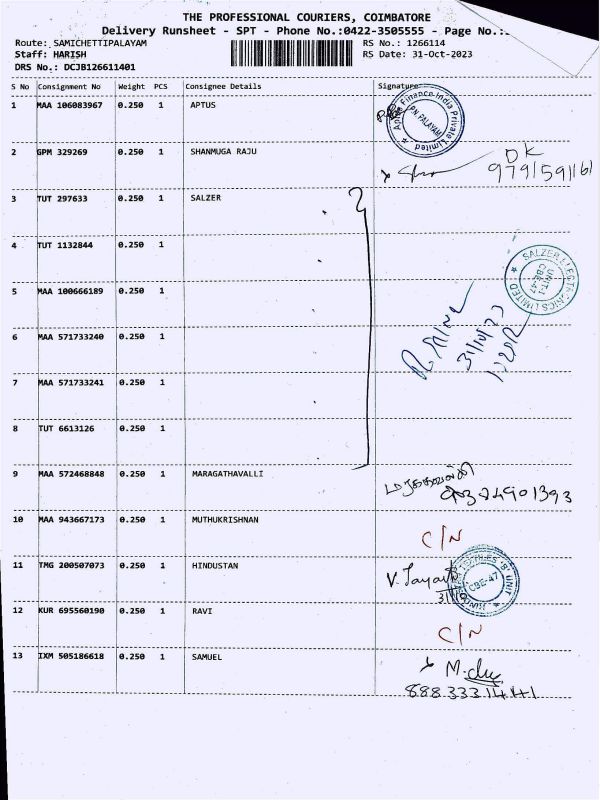 THE PROFESSIONAL COURIERS, COIMBATORE
Delivery Runsheet - SPT - Phone No.:0422-3505555 - Page No.:
Route: SAMICHETTIPALAYAM
Staff: HARISH
DRS No.: DCJB126611401
RS No.: 1266114
RS Date: 31-Oct-2023
S No Consignment No Weight PCS Consignee Details Signature
1 MAA 106083967 0.250 1 APTUS
Aptus Finance India Private Limited
P.N. PALAYAM
2 GPM 329269 0.250 1 SHANMUGA RAJU
OK
9791591161
3 TUT 297633 0.250 1 SALZER
4 TUT 1132844 0.250 1
SALZER ELECTRONICS LIMITED
UNIT-I
CBE-47
5 MAA 100666189 0.250 1
31/10/23
6 MAA 571733240 0.250 1
7 MAA 571733241 0.250 1
8 TUT 6613126 0.250 1
9 MAA 572468848 0.250 1 MARAGATHAVALLI
10 MAA 943667173 0.250 1 MUTHUKRISHNAN
C/N
11 TMG 200507073 0.250 1 HINDUSTAN
CBE-47
12 KUR 695560190 0.250 1 RAVI
C/N
13 IXM 505186618 0.250 1 SAMUEL
8883331441